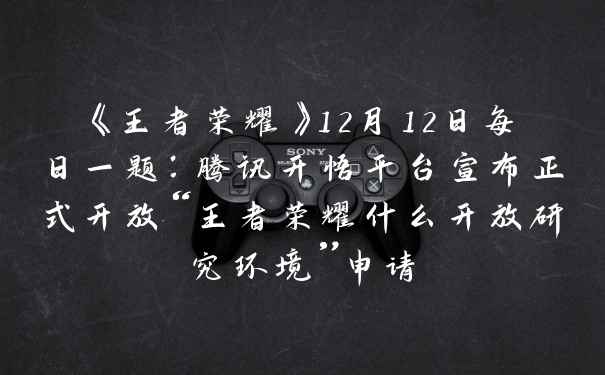 《王者荣耀》12月12日每
日一题：腾讯开悟平台宣布正
式开放“王者荣耀什么开放研
究环境”申请
SONY